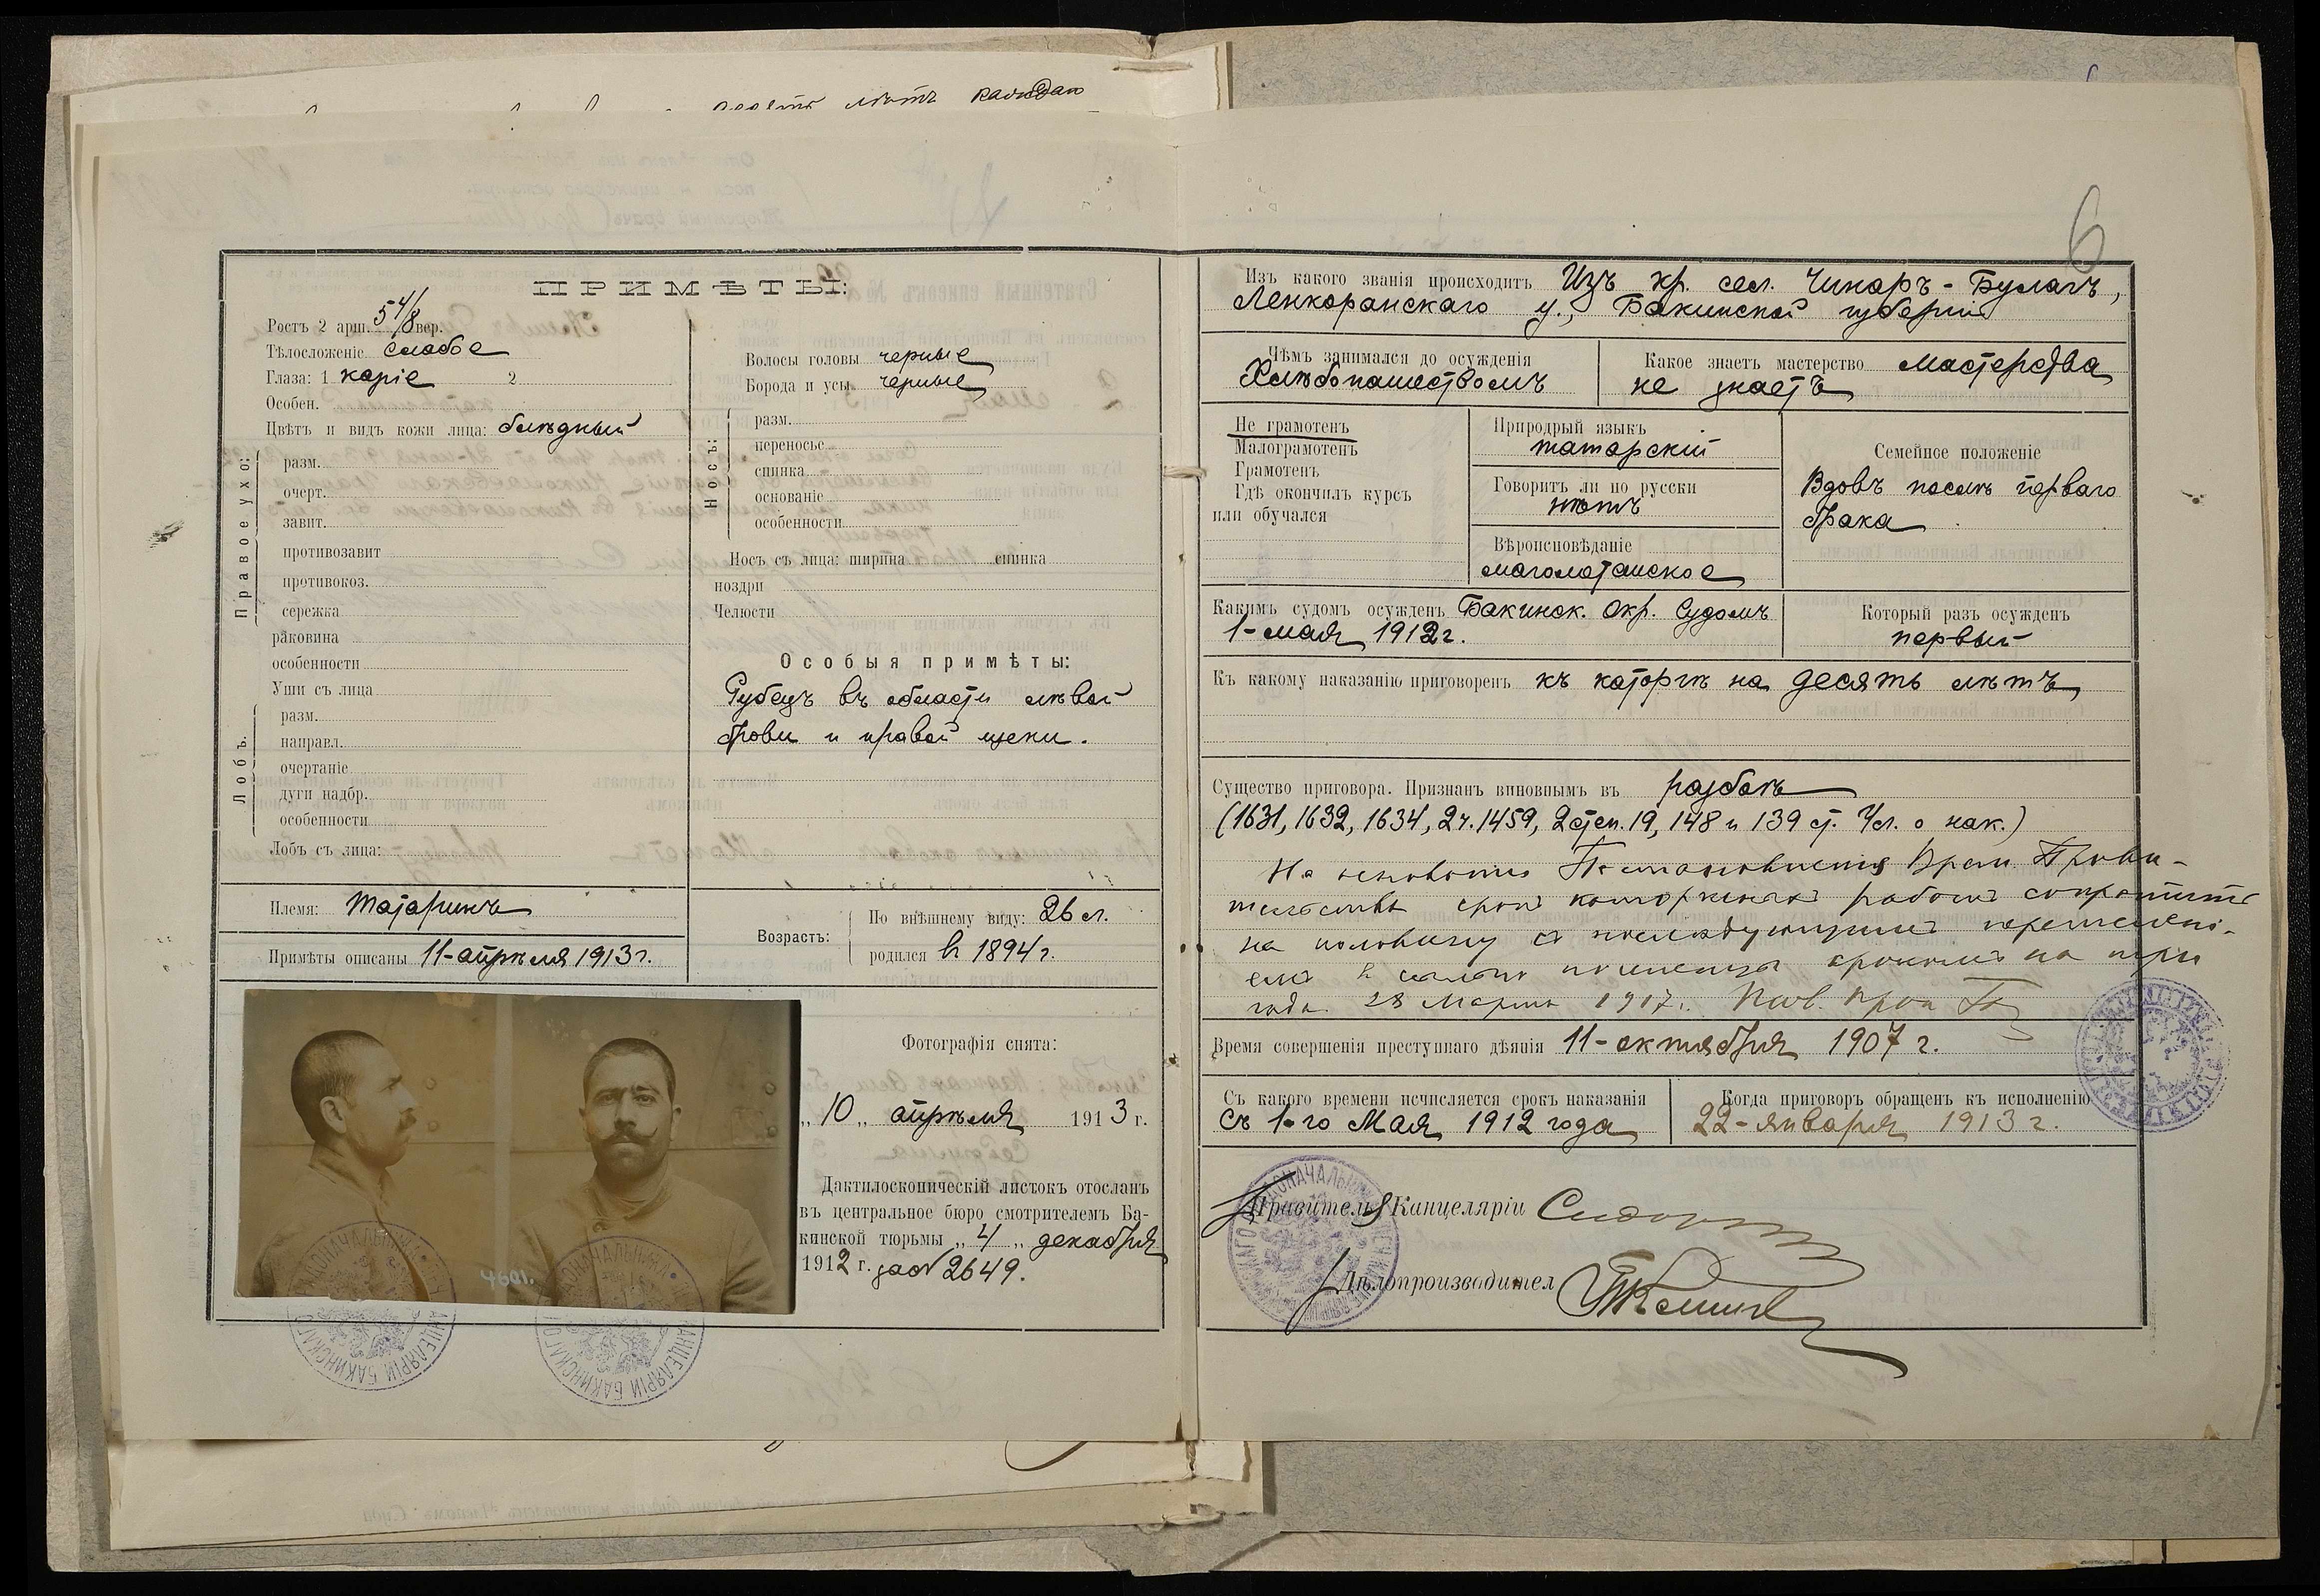 6
ПРИМѢТЫ:
Ростъ 2 арш. 5 4/8 вер.
Тѣлосложеніе слабое
Глаза: 1 каріе 2
Особен.
Цвѣтъ и видъ кожи лица: блѣдный
Правое ухо:
разм.
очерт.
завит.
противозавит
противокоз.
сережка
раковина
особенности
Уши съ лица
Лобъ.
разм.
направл.
очертаніе
дуги надбр.
особенности
Лобъ съ лица:
Волосы головы черные
Борода и усы черные
Носъ:
разм.
переносье
спинка
основаніе
особенности
Носъ съ лица: ширина спинка
ноздри
Челюсти
Особыя примѣты:
Рубецъ въ области лѣвой
брови и правой щеки.
Племя: Татаринъ
Примѣты описаны 11-апрѣля 1913 г.
Возрастъ:
По внѣшнему виду: 26 л.
родился в 1894 г.
Фотографія снята:
„ 10 „ апрѣля 1913 г.
Дактилоскопическій листокъ отосланъ
въ центральное бюро смотрителемъ Ба-
кинской тюрьмы „ 4 „ декабря
1912 г. за № 2649.
4601.
Изъ какого званія происходитъ Изъ кр. сел. Чинаръ-Булагъ,
Ленкоранскаго у., Бакинской губерніи
Чѣмъ занимался до осужденія
Хлѣбопашествомъ
Какое знаетъ мастерство мастерства
не знаетъ
Не грамотенъ
Малограмотенъ
Грамотенъ
Гдѣ окончилъ курсъ
или обучался
Природный языкъ
татарскій
Говоритъ ли по русски
нѣтъ
Вѣроисповѣданіе
магометанское
Семейное положеніе
Вдовъ послѣ перваго
брака
Какимъ судомъ осужденъ Бакинск. Окр. Судомъ
1-мая 1912 г.
Который разъ осужденъ
первый
Къ какому наказанію приговоренъ къ каторгѣ на десять лѣтъ
Существо приговора. Признанъ виновнымъ въ разбоѣ
(1631, 1632, 1634, 2 ч. 1459, 2 степ. 19, 148 и 139 ст. Ул. о нак.)
На основаніи Постановленія Врем. Прави-
тельства срокъ каторжныхъ работъ сократить
на половину съ послѣдующимъ перечислені-
емъ въ ссыльно поселенцы срокомъ на три
года. 28 Марта 1917 г.
Время совершенія преступнаго дѣянія 11-октября 1907 г.
Съ какого времени исчисляется срокъ наказанія
Съ 1-го Мая 1912 года
Когда приговоръ обращенъ къ исполненію
22-января 1913 г.
Правитель Канцеляріи
Дѣлопроизводител